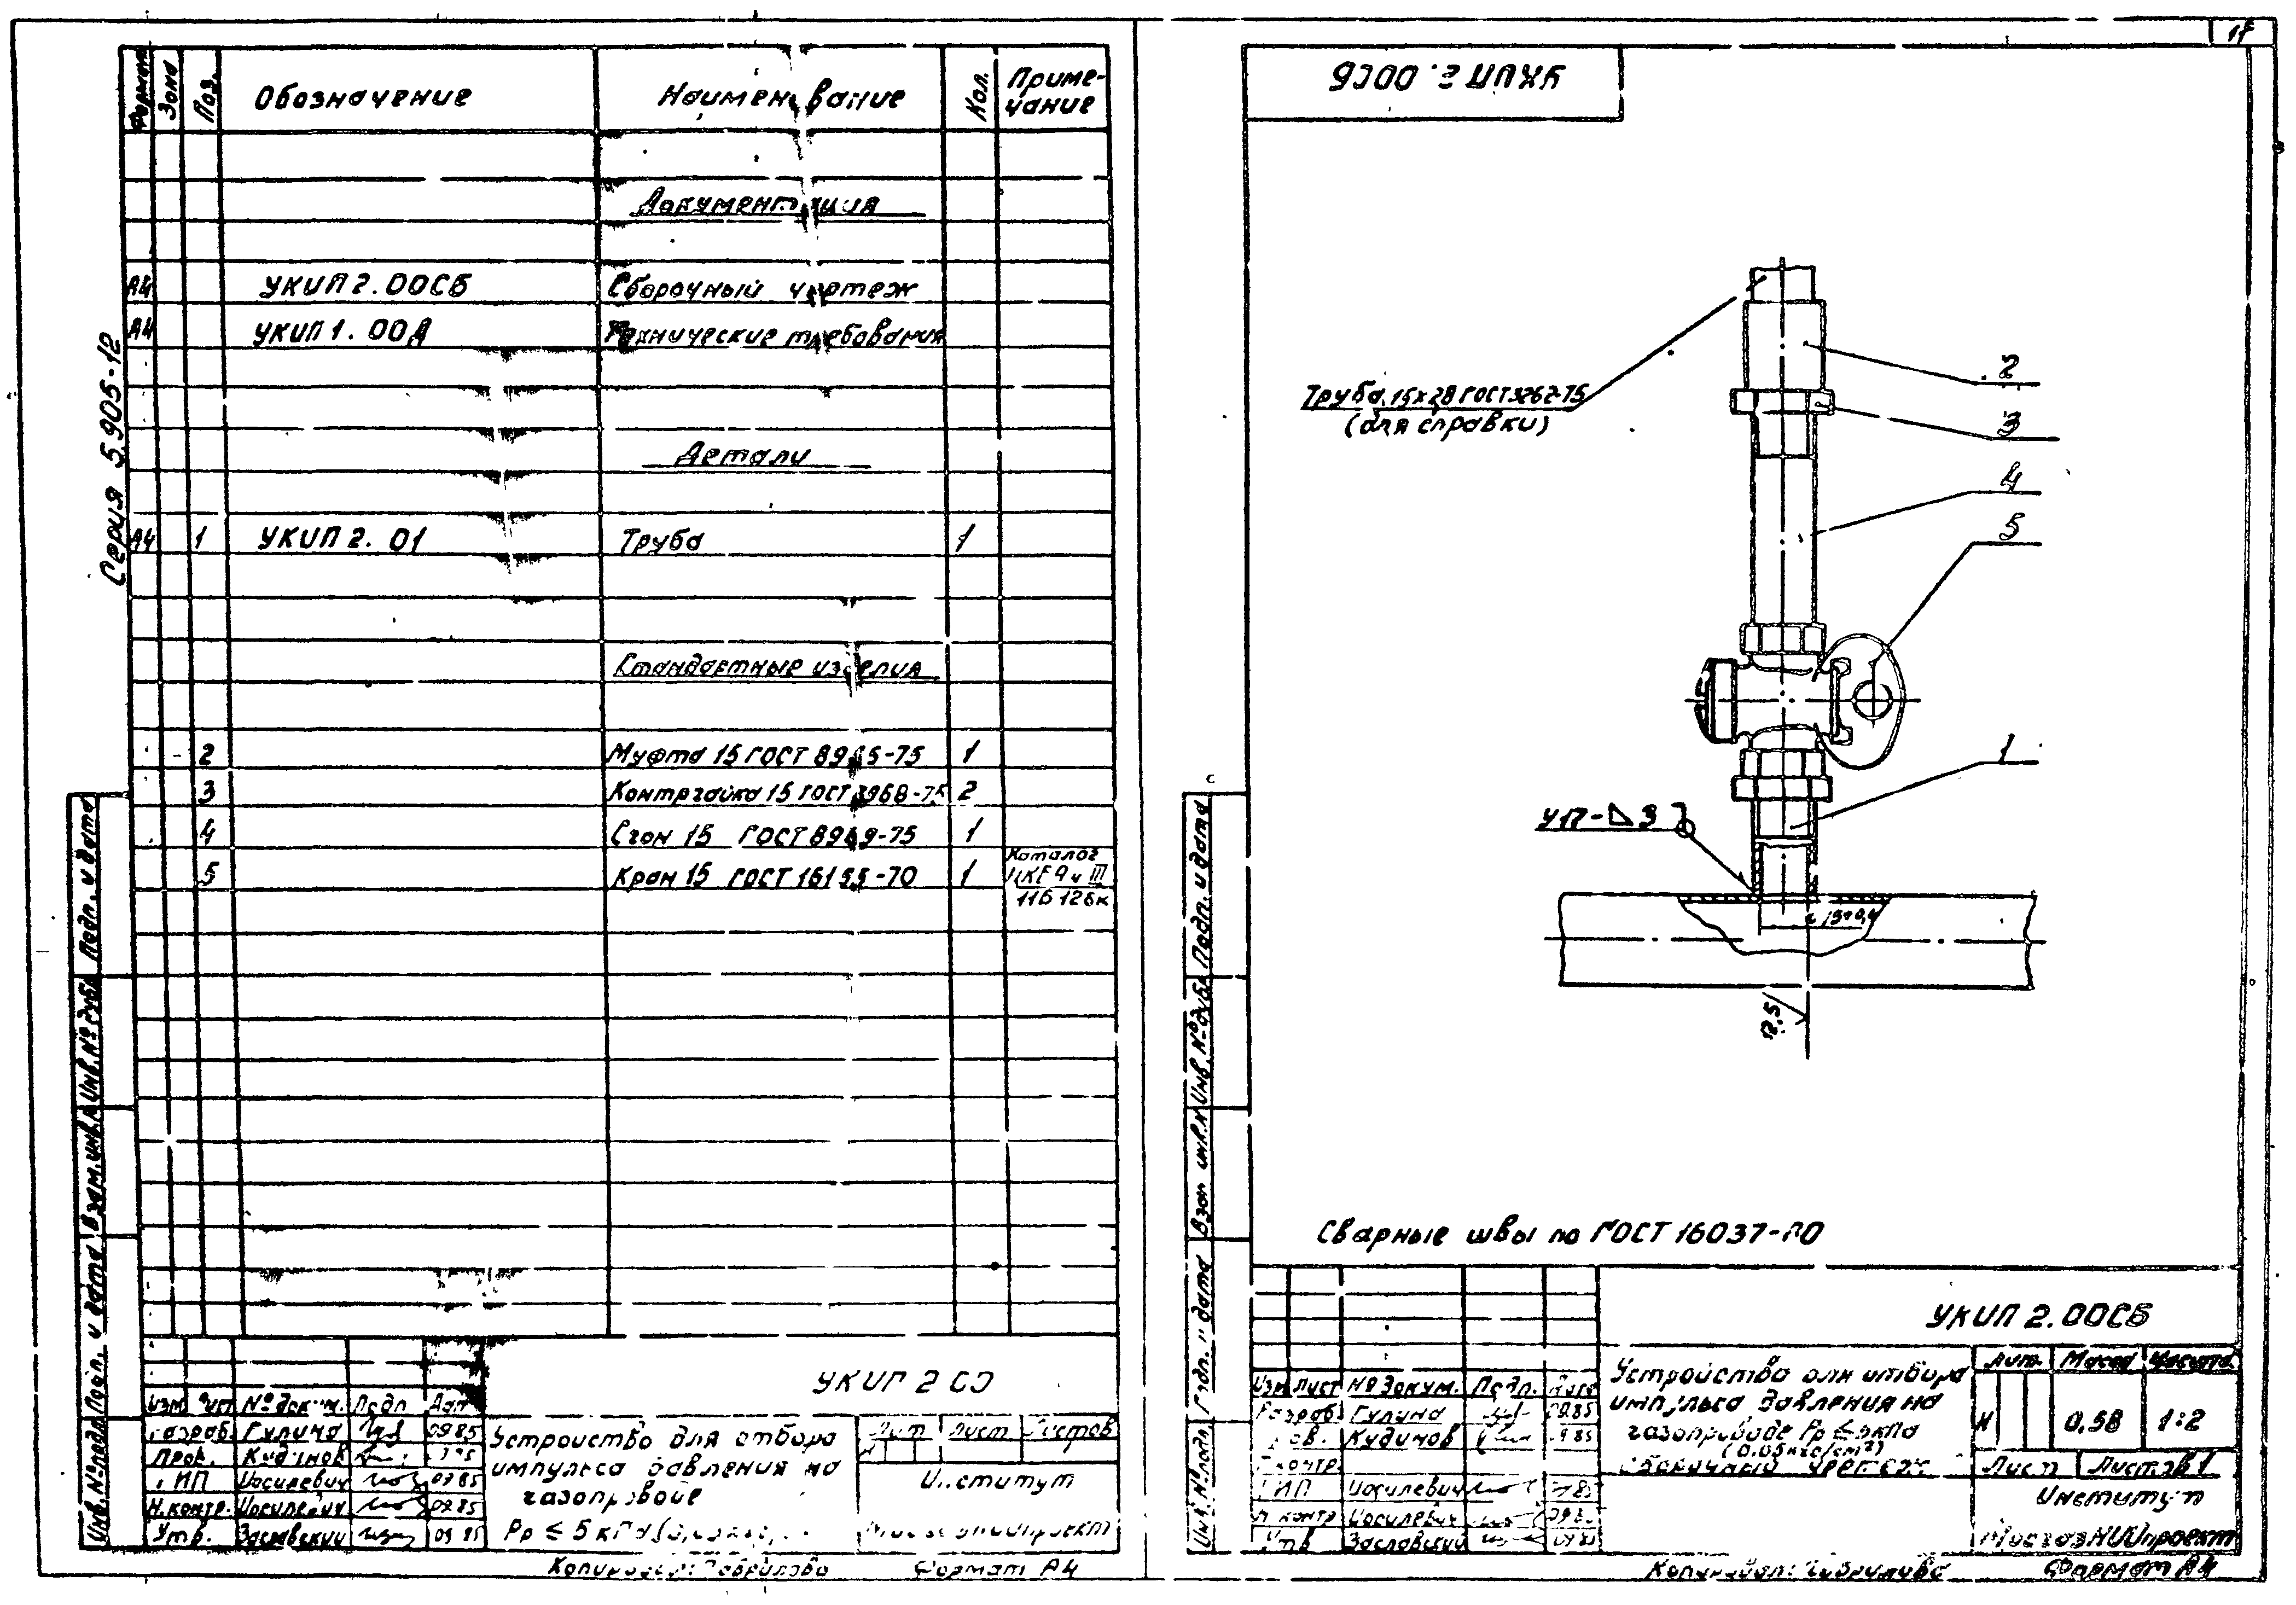 Формат Зона Поз. Обозначение Наименование Кол. Приме-
чание
Документация
А4 УКИП 2.00СБ Сборочный чертеж
А4 УКИП 1.00Д Технические требования
Детали
А4 1 УКИП 2.01 Труба 1
Стандартные изделия
2 Муфта 15 ГОСТ 8965-75 1
3 Контргайка 15 ГОСТ 8968-75 2
4 Сгон 15 ГОСТ 8969-75 1
5 Кран 15 ГОСТ 16155-70 1
Каталог
ЦКБА ч III
11Б12бк
Серия 5.905-12
Подп. и дата
Инв. № дубл.
Взам. инв. №
Подп. и дата
Инв. № подл.
УКИП 2 СО
Изм Лист № докум. Подп Дат
Разраб. Гулина 09.85
Пров. Кудинов
ГИП Иосилевич 09.85
Н.контр. Иосилевич 09.85
Утв. Заславский 09 85
Устройство для отбора
импульса давления на
газопроводе
Рр ≤ 5 кПа
Лит Лист Листов
И
Институт
МосгазНИИпроект
Копировал: Гаврилова Формат А4
УКИП 2.00СБ
Труба 15х2,8 ГОСТ 3262-75
(для справки)
2
3
4
5
1
У17-⊿3
12,5
Сварные швы по ГОСТ 16037-80
Подп. и дата
Инв. № дубл.
Взам инв. №
Подп. и дата
Инв. № подл.
УКИП 2.00СБ
Изм Лист № докум. Подп. Дата
Разраб. Гулина 09.85
Пров. Кудинов 09.85
Т контр.
ГИП Иосилевич
Н контр Иосилевич
Утв Заславский
Устройство для отбора
импульса давления на
газопроводе Рр ≤ 5кПа
(0,05кгс/см²)
Сборочный чертеж
Лит. Масса Масшта.
И 0,58 1:2
Лист Листов 1
Институт
МосгазНИИпроект
Копировал: Гаврилова Формат А4